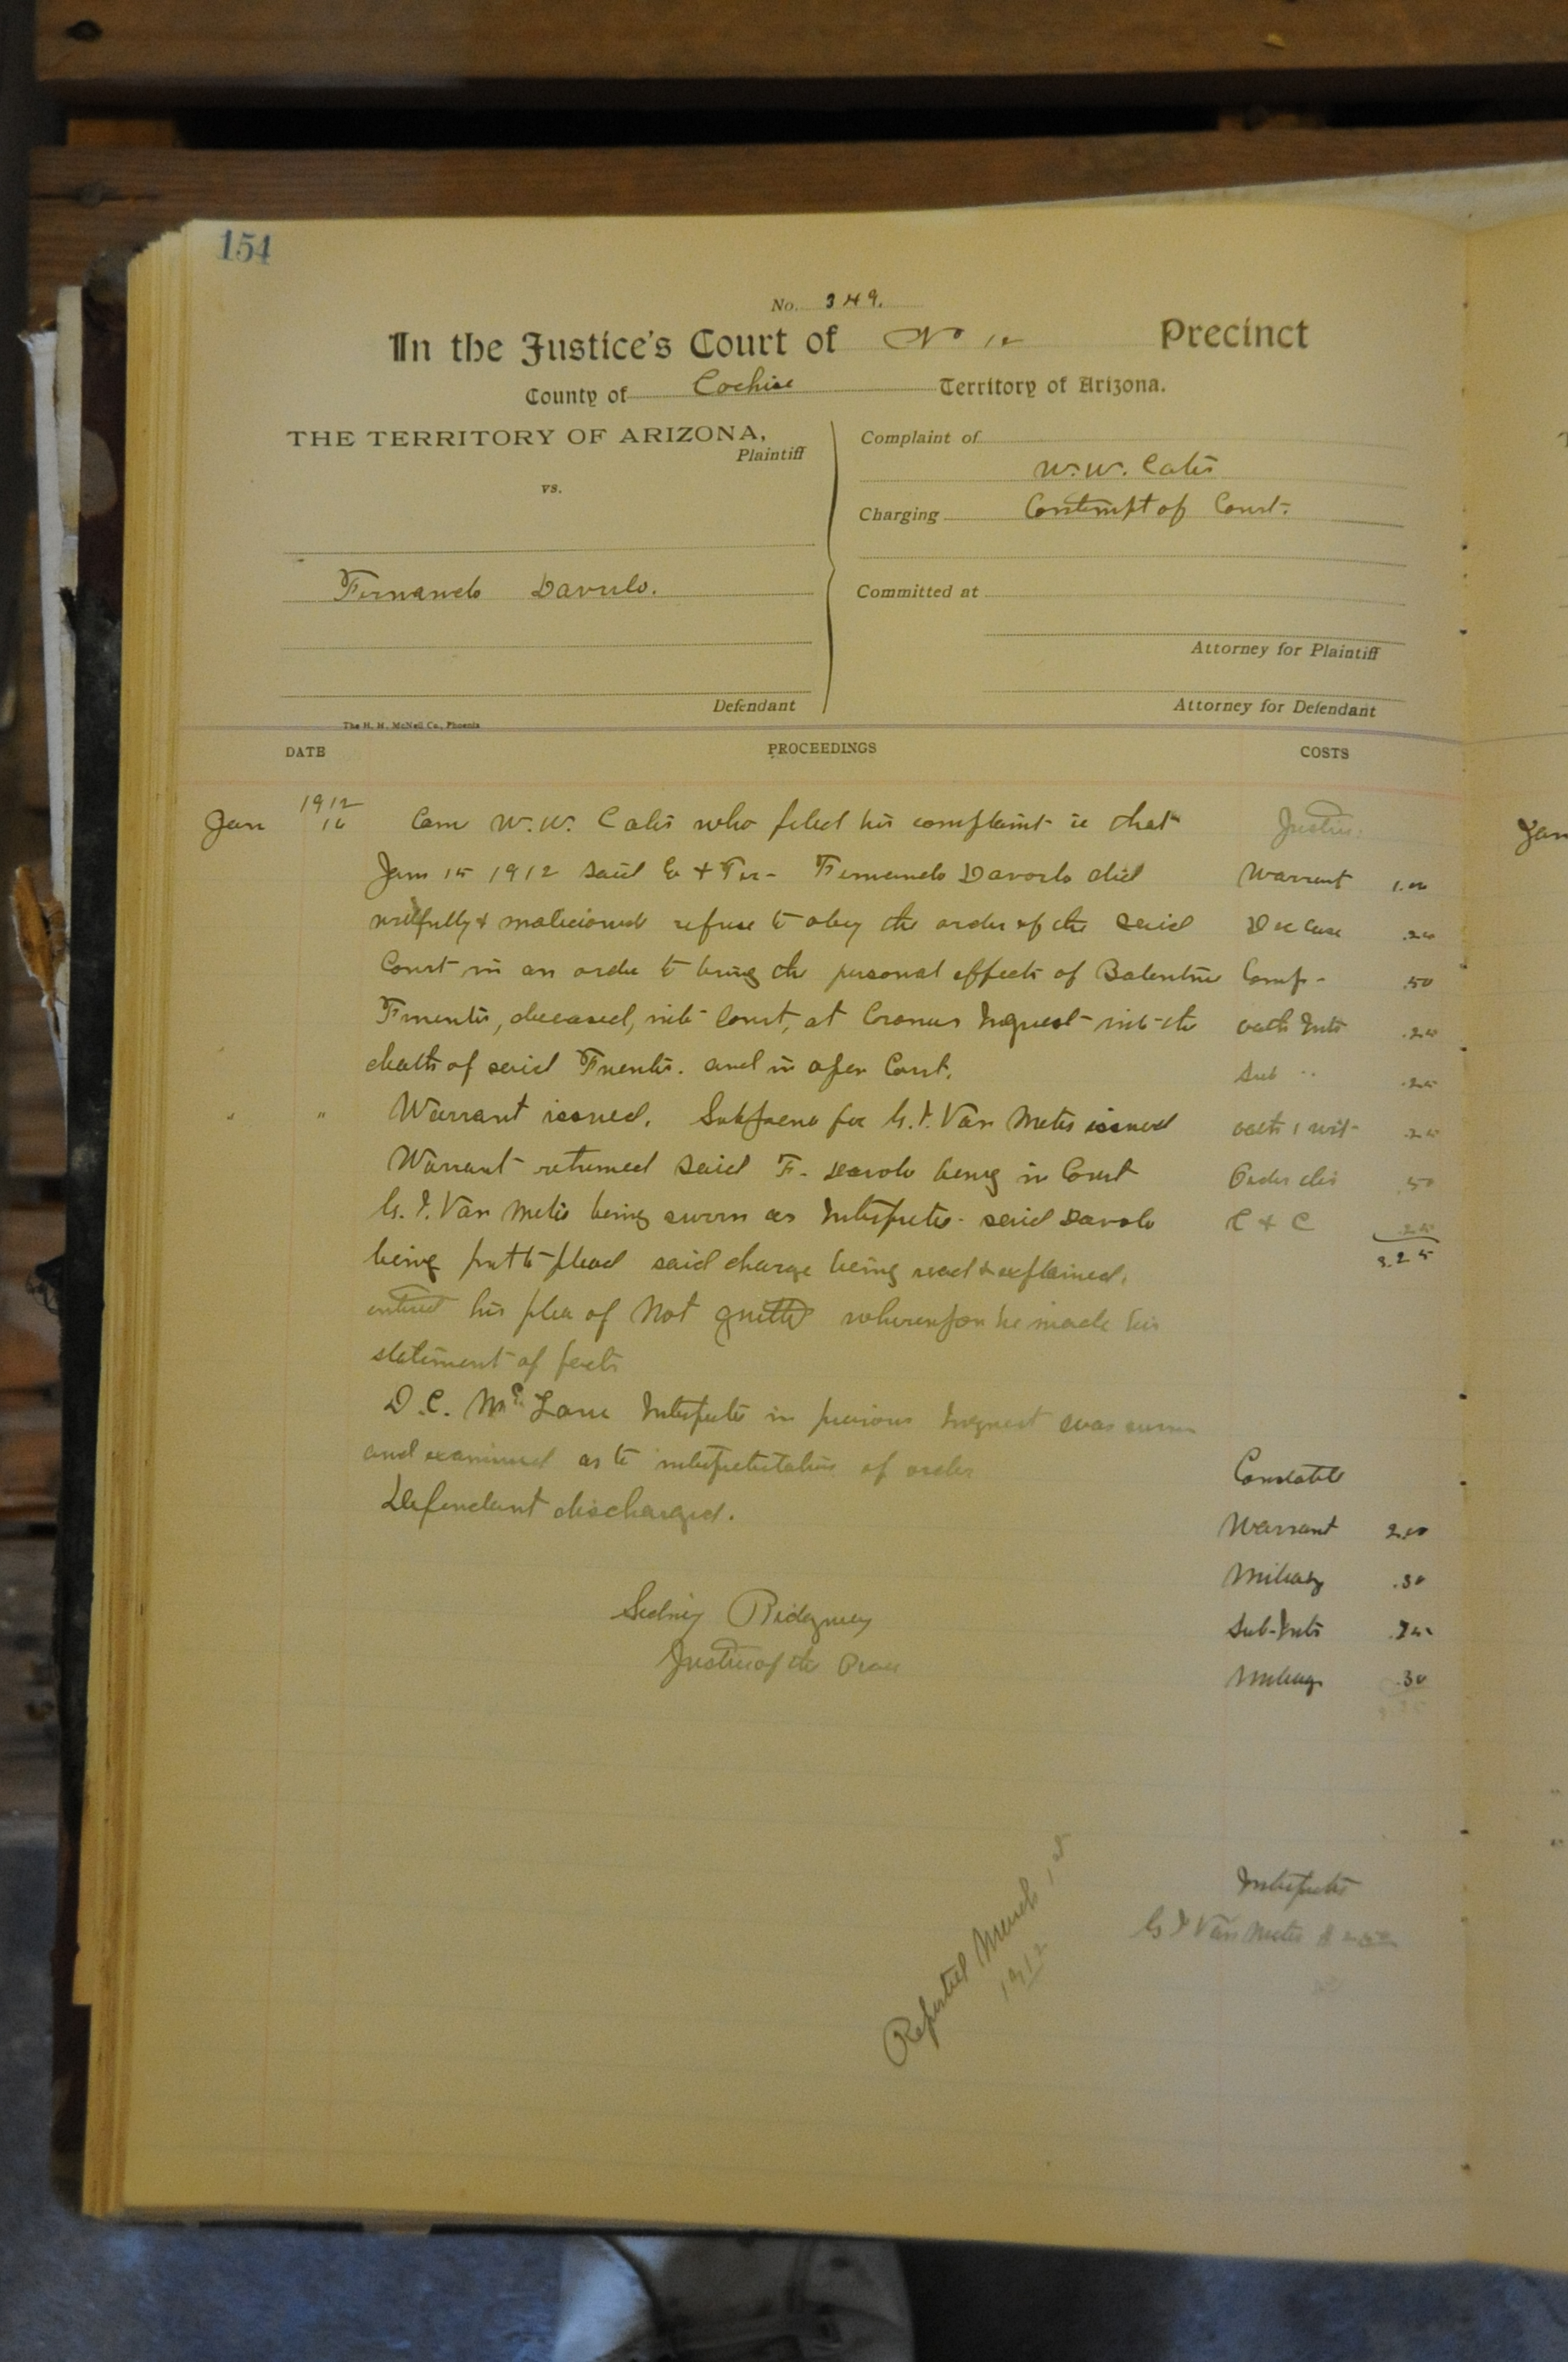 154
No. 349.
In the Justice's Court of No 12 Precinct
County of Cochise Territory of Arizona.
THE TERRITORY OF ARIZONA,
Plaintiff
vs.
Fernando Davulo.
Defendant
Complaint of
W. W. Cates
Charging Contempt of Court.
Committed at
Attorney for Plaintiff
Attorney for Defendant
The H. H. McNeil Co., Phoenix
DATE PROCEEDINGS COSTS
1912
Jan 16 Came W. W. Cates who filed his complaint ie that
Jan 15 1912 said Co & Ter- Fernando Davolo did
wilfully & maliciously refuse to obey the order of the said
Court in an order to bring the personal effects of Balentine
Fuentes, deceased, into Court, at Coroners Inquest into the
death of said Fuentes. and in open Court.
" " Warrant issued. Subpoena for G. I. Van Meter issued
Warrant returned said F. Davolo being in Court
G. I. Van Meter being sworn as Interpreter said Davolo
being put to plead said charge being read & explained,
entered his plea of Not guilty whereupon he made his
statement of facts
D. C. McLane Interpreter in previous Inquest was sworn
and examined as to interpretation of order
Defendant discharged.
Sidney Ridgway
Justice of the Peace
Justice
Warrant 1.00
Doc Case
Comp- .50
oath Intr .25
Sub " .25
oath 1 wit- .25
Order dis .50
C & C .25
3.25
Constable
Warrant 2.00
Mileage .30
Sub-Intr
Mileage .30
Interpreter
G I Van Meter $
Reported March 1st
1912
Jan